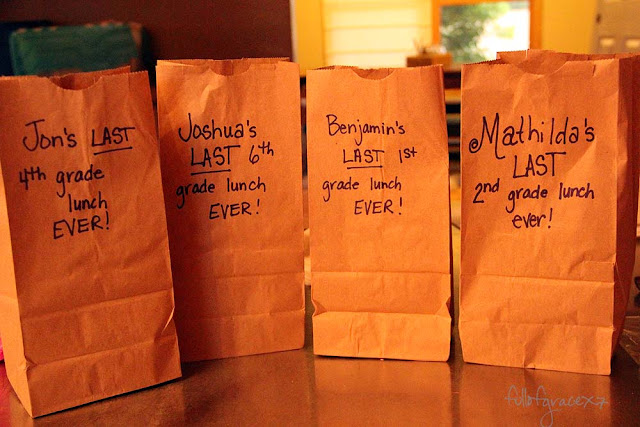 Jon's LAST
4th grade
lunch
EVER!
Joshua's
LAST 6th
grade lunch
EVER!
Benjamin's
LAST 1st
grade lunch
EVER!
Mathilda's
LAST
2nd grade lunch
ever!
fullofgracex7